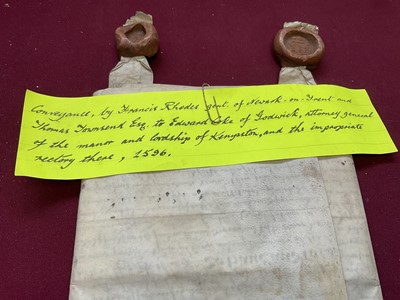 Conveyance, by Francis Rhodes gent. of Newark-on-Trent and
Thomas Townsend Esq. to Edward Coke of Godwick, attorney general
of the manor and lordship of Kempston, and the impropriate
rectory there, 1596.